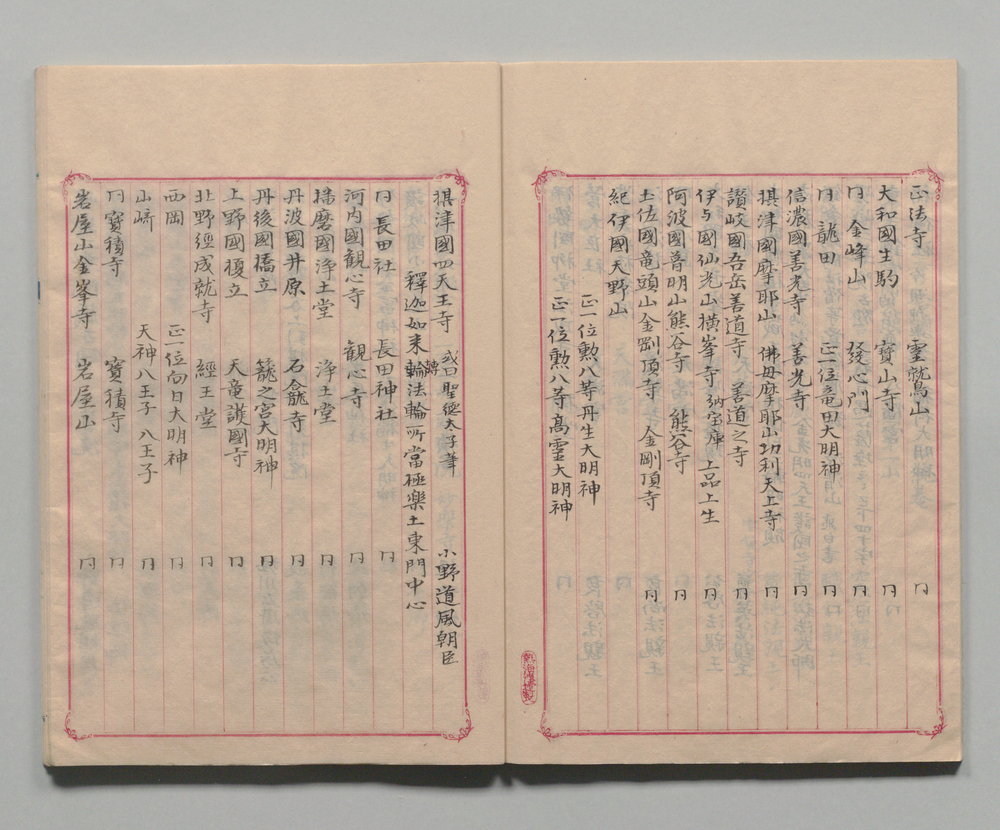 正法寺　靈鷲山　円
大和國生駒　寶山寺　円
円　金峰山　發心門　円
円　龍田　正一位竜田大明神　円
信濃國善光寺　善光寺　円
摂津國摩耶山　佛母摩耶山功利天上寺　円
讃岐國吾岳善道寺　善道之寺　円
伊与國仙光山横峯寺　納宝庫　上品上生　円
阿波國普明山熊谷寺　熊谷寺　円
土佐國竜頭山金剛頂寺　金剛頂寺　円
紀伊國天野山
正一位勲八等丹生大明神
正一位勲八等高靈大明神
摂津國四天王寺　或曰聖徳太子筆　小野道風朝臣
釋迦如来轉輪法輪所當極楽土東門中心
円　長田社　長田神社　円
河内國観心寺　観心寺　円
播磨國浄土堂　浄土堂　円
丹波國井原　石龕寺　円
丹後國橋立　籠之宮大明神　円
上野國榎立　天竜護國寺　円
北野經成就寺　經王堂　円
西岡　正一位向日大明神　円
山崎　天神八王子　八王子　円
円　寶積寺　寶積寺　円
岩屋山金峯寺　岩屋山　円